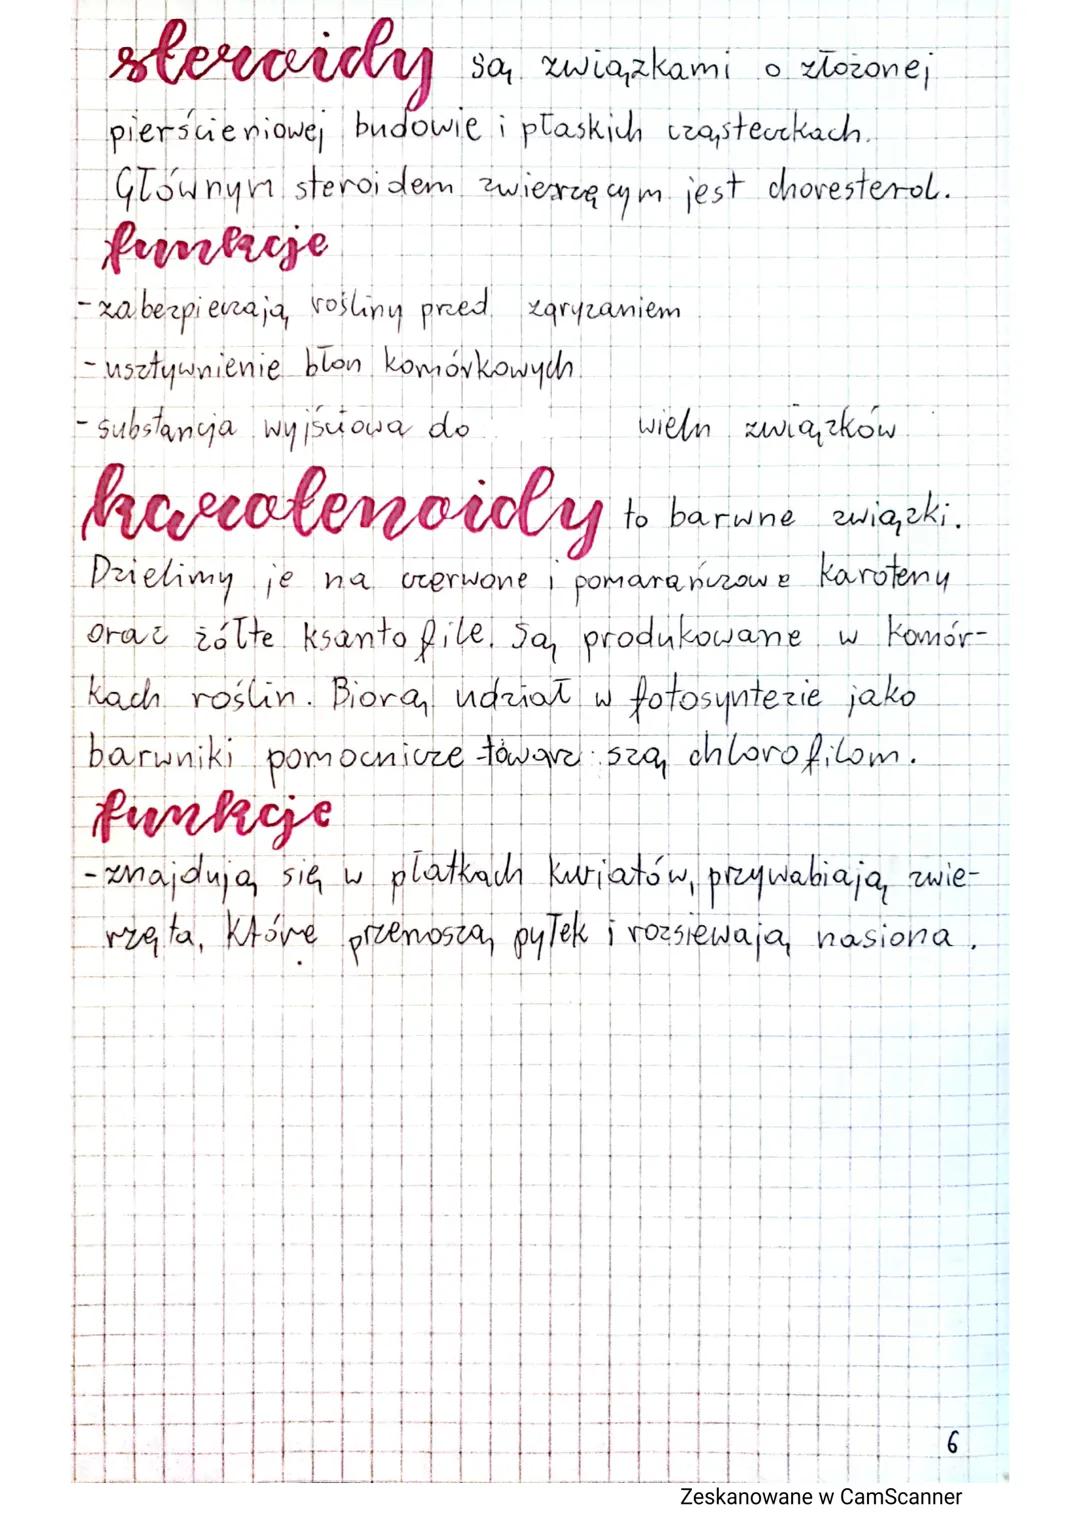 steroidy są związkami o złożonej
pierścieniowej budowie i płaskich cząsteczkach.
Głównym steroidem zwierzęcym jest chovesterol.
funkcje
- zabezpieczają rośliny przed zgryzaniem
- usztywnienie błon komórkowych
- substancja wyjściowa do wielu związków
karotenoidy to barwne związki.
Dzielimy je na czerwone i pomarańczowe karoteny
oraz żółte ksantofile. Są produkowane w komór-
kach roślin. Biorą udział w fotosyntezie jako
barwniki pomocnicze towarz szą chlorofilom.
funkcje
- znajdują się w płatkach kwiatów, przywabiają zwie-
rzęta, które przenoszą pyłek i rozsiewają nasiona.
6
Zeskanowane w CamScanner